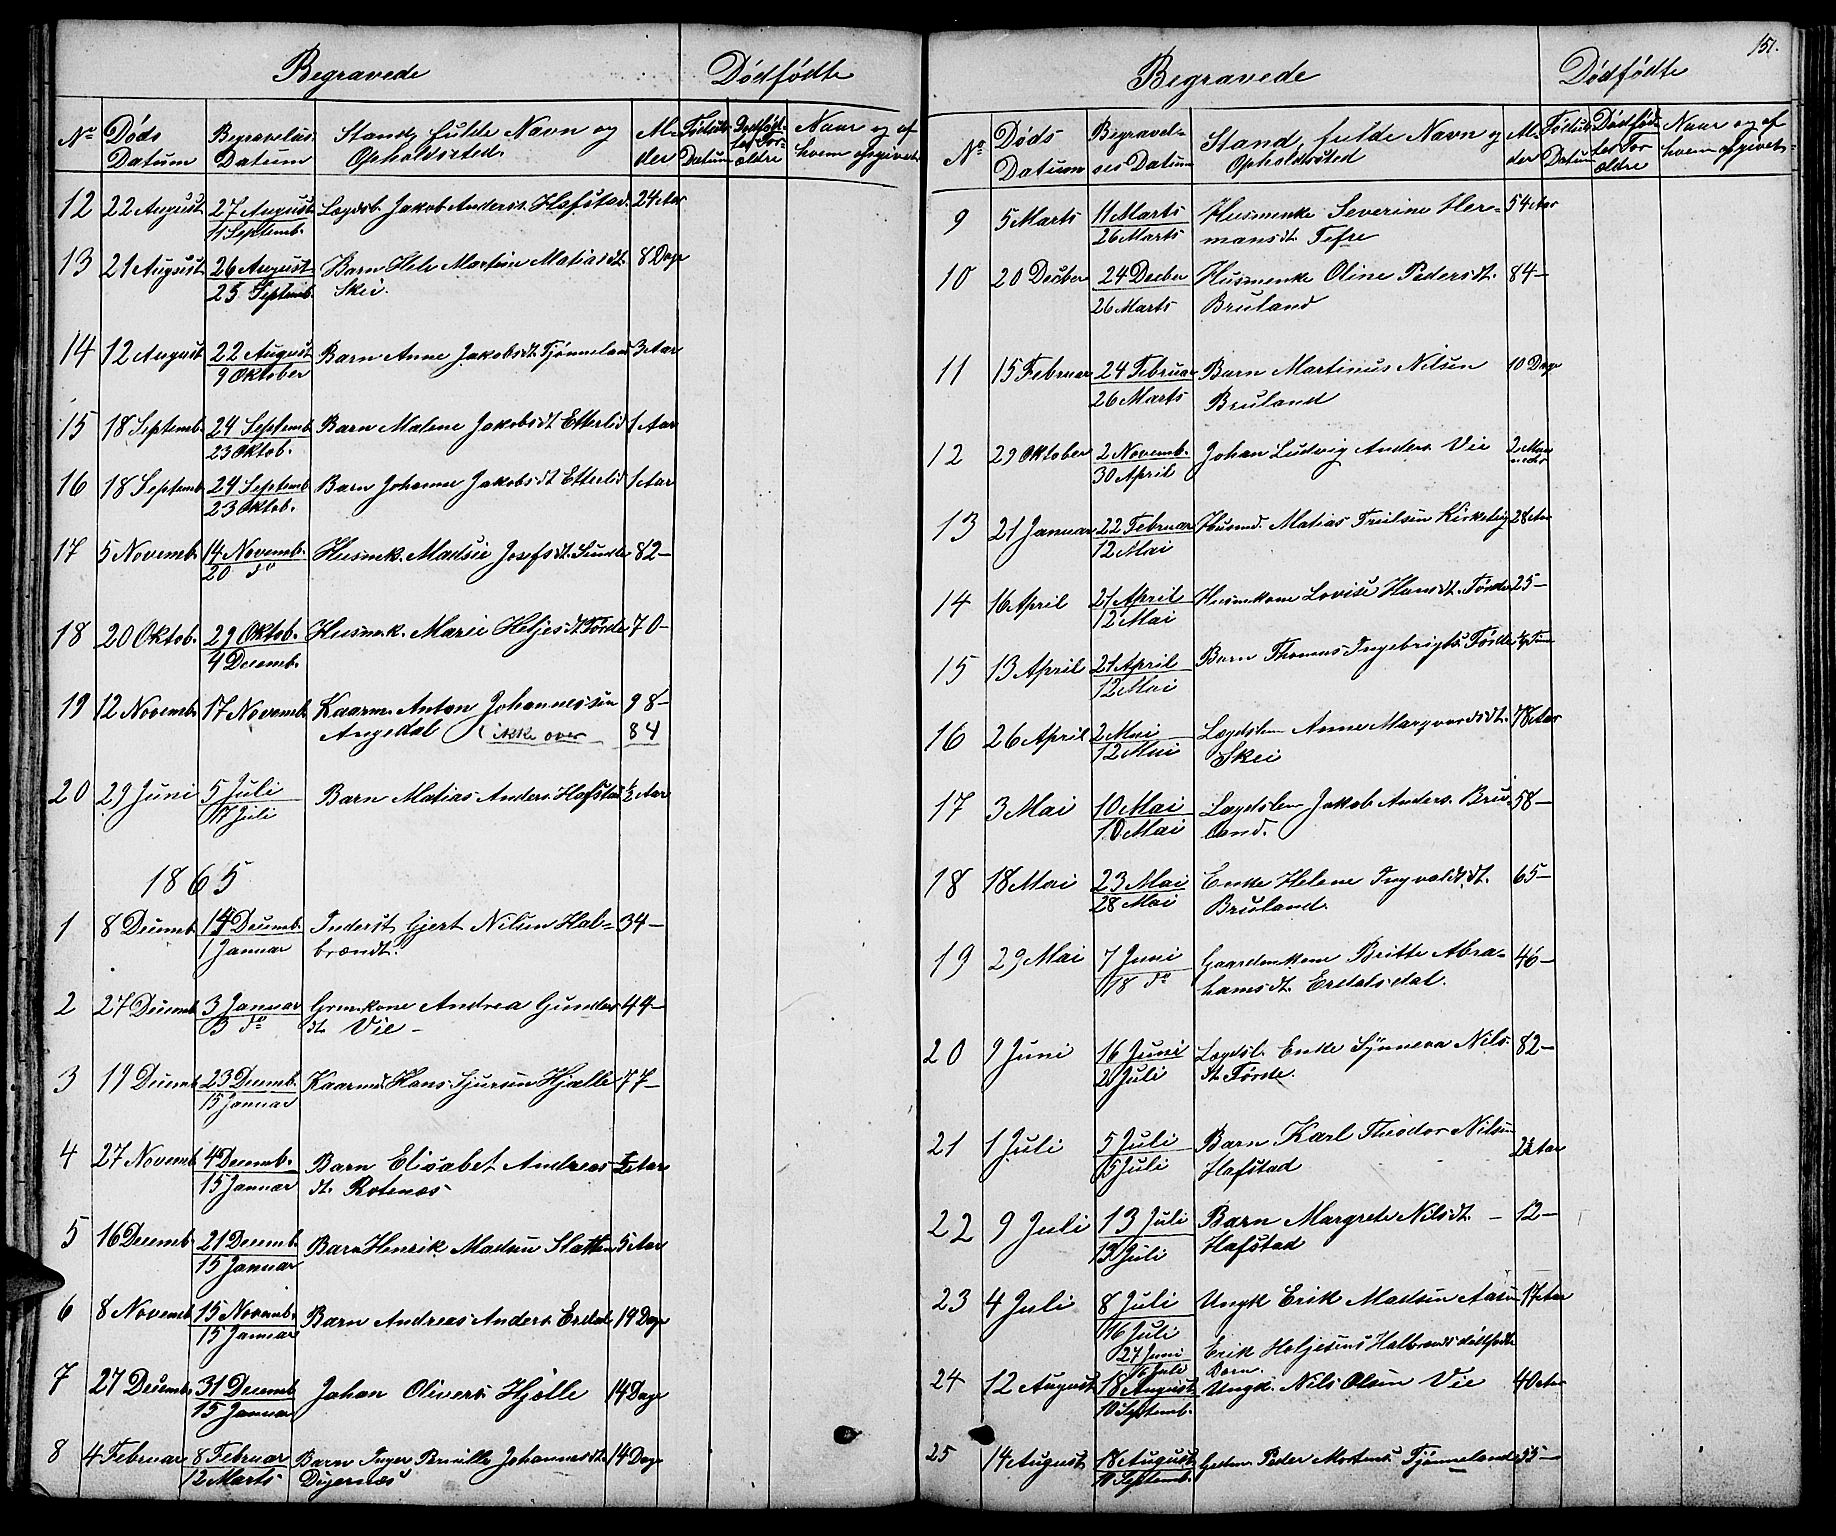 Begravede Dødfødte
No Døds Datum Begravelses Datum Stand, fulde Navn og Opholdssted. Alder Fødsels Datum Dødfødtes Forældre Naar og af hvem opgivet
12 22 August 27 August Lægdsl. Jakob Anders. Hafstad. 24 Aar
11 Septemb.
13 21 August 26 August Barn Hele Martine Matiasdt. 8 Dage
25 Septemb. Skei.
14 12 August 22 August Barn Anne Jakobsdt. Tjønneland 3 Aar
9 Oktober
15 18 Septemb. 24 Septemb. Barn Malene Jakobsdt Etterlid 1 Aar
23 Oktob.
16 18 Septemb. 24 Septemb. Barn Johanne Jakobsdt Etterlid 1 Aar
23 Oktob.
17 5 Novemb. 14 Novemb. Husmk. Madsie Josefsdt. Sunde 82 -
20 do
18 20 Oktob. 29 Oktob. Husmk. Marie Heljesdt. Førde 70 -
4 Decemb.
19 12 Novemb. 17 Novemb. Kaarm. Anton Johannessen 98 -
Angedal (ikke over 84
20 29 Juni 5 Juli Barn Matias Anders. Hafstad ½ Aar
17 Juli
1865
1 8 Decemb. 14 Decemb. Inderst Gjert Nilsen Hal= 34 -
1 Januar brændt.
2 27 Decemb. 3 Januar Grmkone Andrea Gunders 44 -
do dt. Vie -
3 19 Decemb. 23 Decemb. Kaarmd. Hans Sjursen Hjælle 77 -
15 Januar
4 27 Novemb. 4 Decemb. Barn Elisabet Andreas- ½ Aar
15 Januar dt. Rotenæs
5 16 Decemb. 21 Decemb. Barn Henrik Madsen Slatten 5 Aar
15 Januar
6 8 Novemb. 15 Novemb. Barn Andreas Anders. Erdal 19 Dage
15 Januar
7 27 Decemb. 31 Decemb. Johan Olivers. Hjølle 14 Dage
15 Januar
8 4 Februar 8 Februar Barn Inger Pernille Johannesdt. 14 Dage
12 Marts Digernæs
151.
Begravede Dødfødte
No Døds Datum Begravelses Datum Stand, fulde Navn og Opholdssted Alder Fødsels Datum Dødfødtes Forældre Naar og af hvem opgivet
9 5 Marts 11 Marts Husmenke Severine Her= 54 Aar
26 Marts mansdt. Tefre
10 20 Decber 24 Decber Husmenke Oline Pedersdt. 84 -
26 Marts Bruland
11 15 Februar 24 Februar Barn Martinus Nilsen 10 Dage
26 Marts Bruland
12 29 Oktober 2 Novemb. Johan Ludvig Anders. Vie 2 Maaneder
30 April
13 21 Januar 22 Februar Husmd. Matias Kirkeeig 28 Aar
12 Mai
14 16 April 21 April Husmkone Lovise Hansdt. Førde 25 -
12 Mai
15 13 April 21 April Barn Thomas Ingebrigts. Førde
12 Mai
16 26 April 2 Mai Lægdslem Anne Marqvardsdt. 78 Aar
12 Mai Skei
17 3 Mai 10 Mai Lægdslem Jakob Anders. Bru= 58 -
10 Mai land.
18 18 Mai 23 Mai Enke Helene Ingvaldsdt. 65 -
28 Mai Bruland.
19 29 Mai 7 Juni Gaardmkone Britte Abra= 46 -
18 do hamsdt. Erdalsdal.
20 9 Juni 16 Juni Lægdsl. Enke Synneva Nils- 82 -
2 Juli dt. Førde.
21 1 Juli 5 Juli Barn Karl Theodor Nilsen
Juli Hafstad
22 9 Juli 13 Juli Barn Margrete Nilsdt. - 12 -
13 Juli Hafstad
23 4 Juli 8 Juli Ungk Erik Madsen Aasen 17 Aar
16 Juli
27 Juni Erik Heljesens Halbrends dødfødte
16 Juli Barn.
24 12 August 18 August Ungk. Nils Olsen Vie 40 Aar
10 Septemb.
25 14 August 18 August Gadm. Peder Mortens. Tjønneland 55 -
10 Septemb.